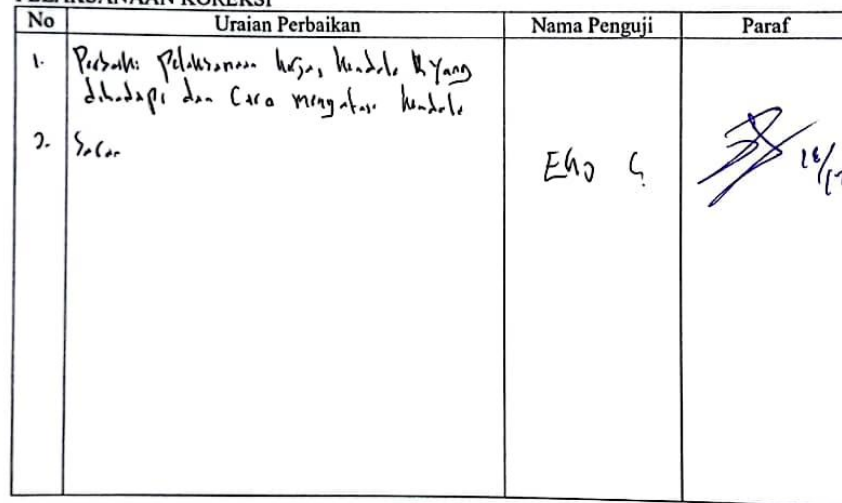 PELAKSANAAN KOREKSI
No Uraian Perbaikan Nama Penguji Paraf
1. Perbaiki Pelaksanaan kerja, kendala yang
dihadapi dan Cara mengatasi kendala
2. Saran
Eko S